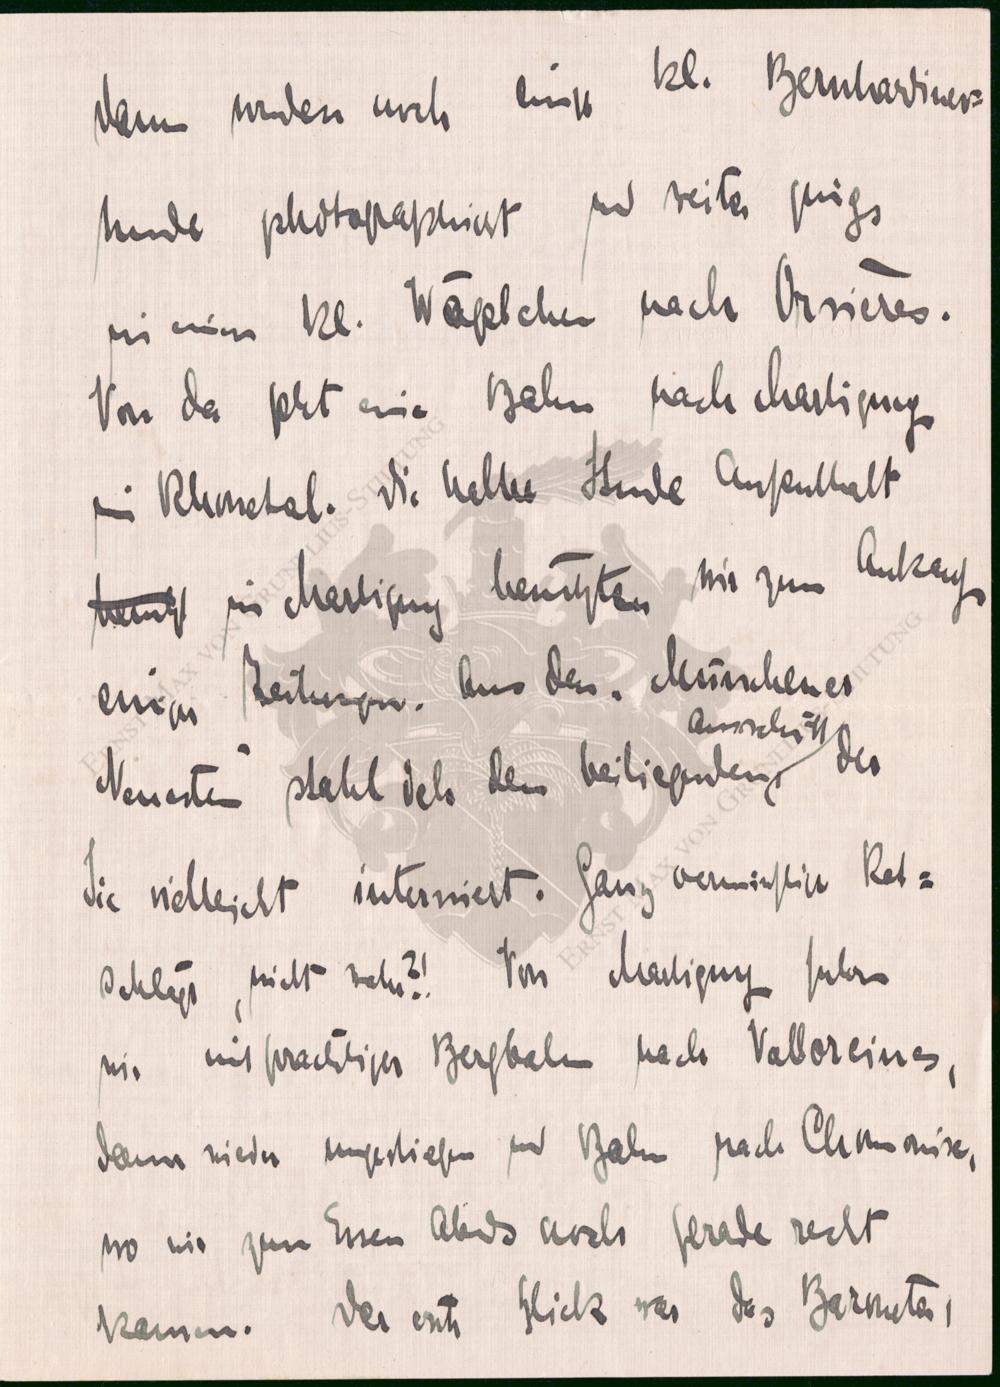 dann wurden noch einige kl. Bernhardiner=
hunde photographiert und weiter gings
in einem kl. Wägelchen nach Orsières.
Von da geht eine Bahn nach Martigny
im Rhonetal. Die halbe Stunde Aufenthalt
benutz in Martigny benützten wir zum Ankauf
einiger Zeitungen. Aus den Münchener
Ausschnitt
Neuesten stahl ich den beiliegenden, der
Sie vielleicht interessiert. Ganz vernünftige Rat=
schläge, nicht wahr?! Von Martigny fuhren
wir mit prächtiger Bergbahn nach Vallorcines,
dann wieder umgestiegen und Bahn nach Chamonix,
wo wir zum Essen Abends noch gerade recht
kamen. Der erste Blick war das Barometer,
ERNST MAX VON GRUNELIUS-STIFTUNG
ERNST MAX VON GRUNELIUS-STIFTUNG